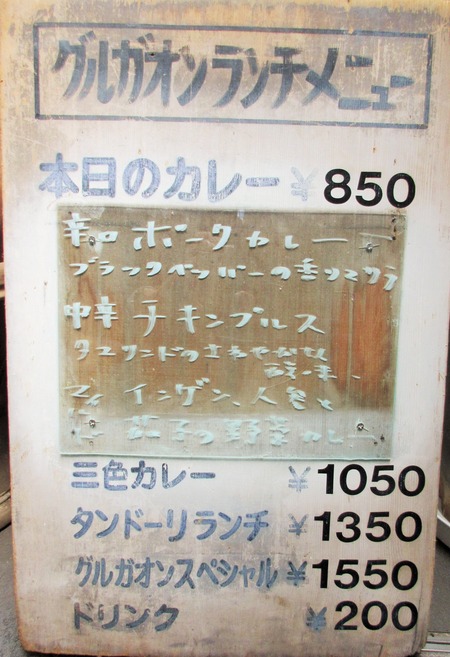 グルガオンランチメニュー
本日のカレー ¥850
辛口 ポークカレー
ブラックペッパーの香り
中辛 チキンプルス
タマリンドの
酸味、
インゲン、人参と
茄子の野菜カレー
三色カレー ¥1050
タンドーリランチ ¥1350
グルガオンスペシャル ¥1550
ドリンク ¥200